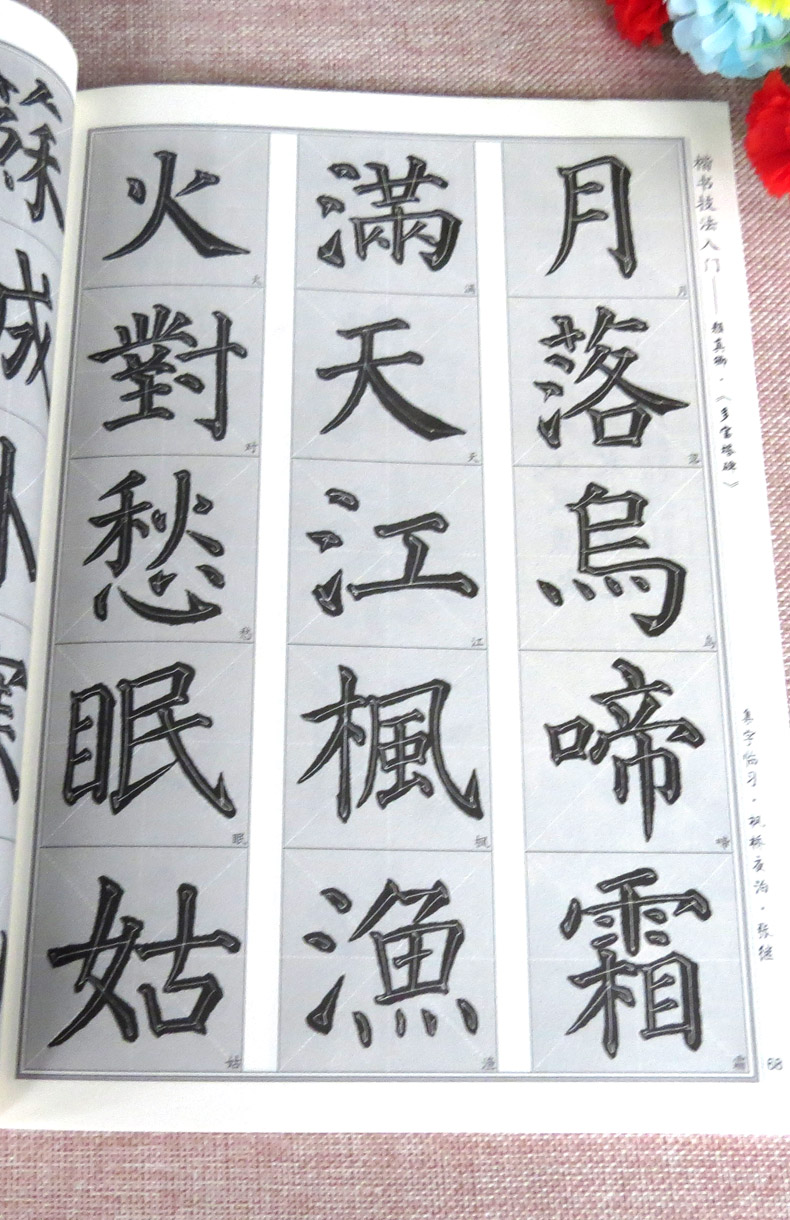 楷书技法入门——颜真卿·《多宝塔碑》
集字临习·枫桥夜泊·张继
月落烏啼霜
月落乌啼霜
滿天江楓漁
满天江枫渔
火對愁眠姑
火对愁眠姑
68
蘇
成